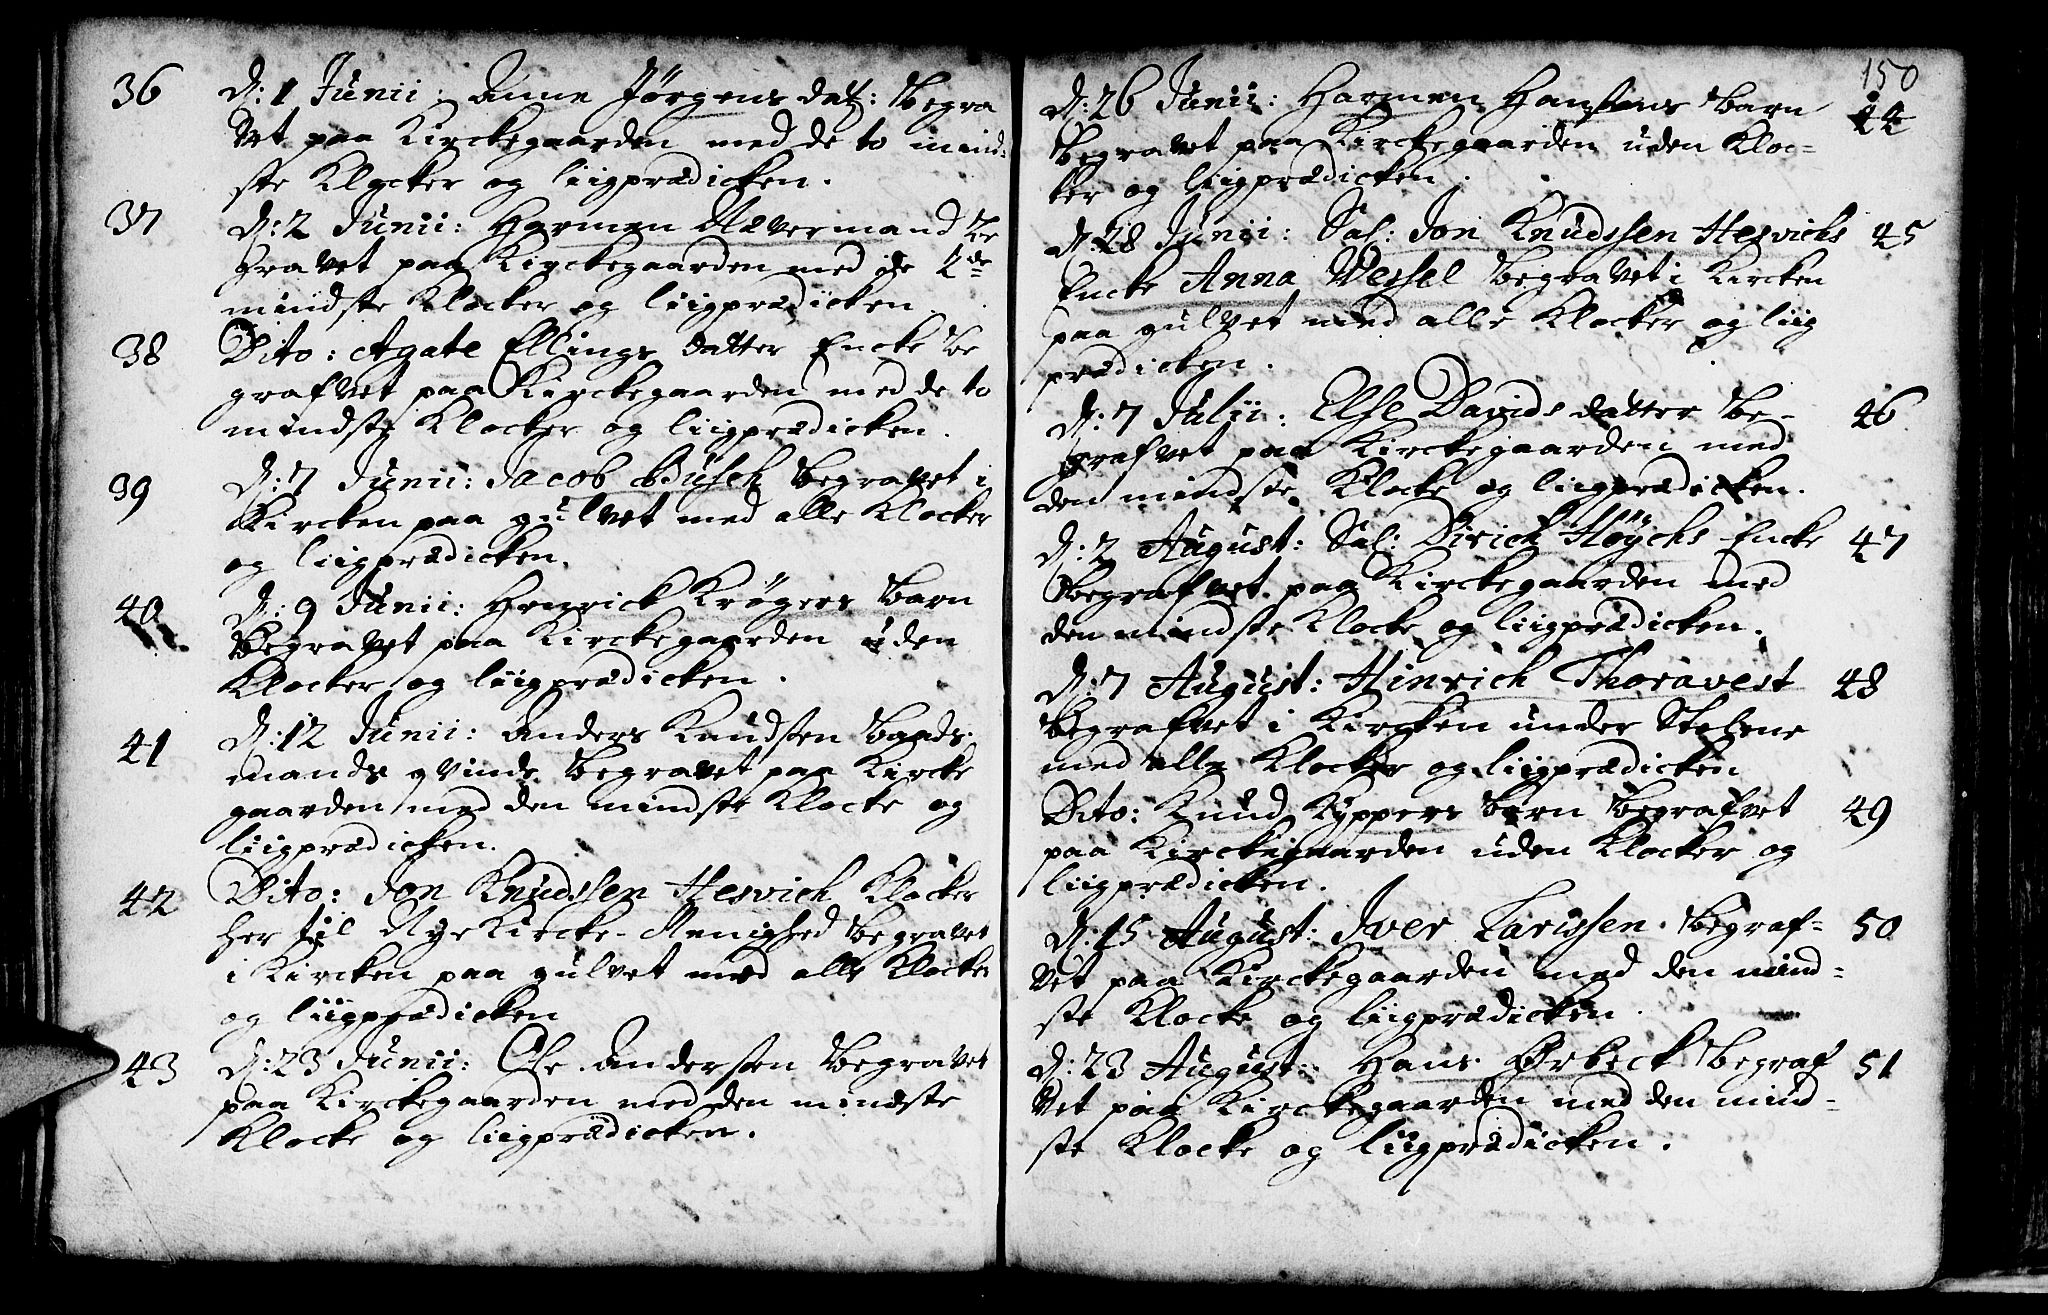 36 D: 1 Junii: Anne Jørgens dat: Begra
vet paa Kirckegaarden med de to mind-
ste Klocker og liigprædicken.
37 D: 2 Junii: HarmenÆvermand Be
gravet paa Kirckegaarden med de 2de
mindste Klocker og liigprædicken.
38 Dito: Agate Ellings datter Encke be
grafvet paa Kirckegaarden med de to
mindste Klocker og liigprædicken.
39 D: 7 Junii: Jacob Busch Begravet i
Kircken paa gulvet med alle Klocker
og liigprædicken.
40 D: 9 Junii: Henrick Krøgers Barn
Begravet paa Kirckegaarden uden
Klocker og liigprædicken.
41 D: 12 Junii: Anders Knudsen Baads
mands qvinde Begravet paa Kircke
gaarden med den mindste Klocke og
liigprædicken.
42 Dito: Jon Knudssen Hesvich Klocker
her til Nye Kircke-Menighed Begravet
i Kircken paa gulvet med alle Klocker
og liigprædicken
43 D: 23 Junii: Ole Andersen Begravet
paa Kirckegaarden med den mindste
Klocke og liigprædicken.
150
D: 26 Junii: Harmen Hansens Barn 44
Begravet paa Kirckegaarden uden Kloc-
ker og liigprædicken.
D: 28 Junii: Sal: Jon Knudssen Hesvichs 45
Encke Anna Wessel Begravet i Kircken
paa gulvet med alle Klocker og liig
prædicken.
D: 7 Julii: Else Davids datter Be- 46
grafvet paa Kirckegaarden med
den mindste Klocke og liigprædicken.
D: 2 August: Sal: Dirich Høychs Encke 47
Begrafvet paa Kirckegaarden med
den mindste Klocke og liigprædicken.
D: 7 August: Hinrich Thoravest 48
Begrafvet i Kircken under Stolene
med alle Klocker og liigprædicken
Dito: Knud Kyppers barn Begrafvet 49
paa Kirckegaarden uden Klocker og
liigprædicken.
D: 15 August: Iver Larissen Begraf- 50
vet paa Kirckegaarden med den mind-
ste Klocke og liigprædicken.
D: 23 August: Hans Ørbeck Begraf 51
vet paa Kirckegaarden med den mind-
ste Klocke og liigprædicken.